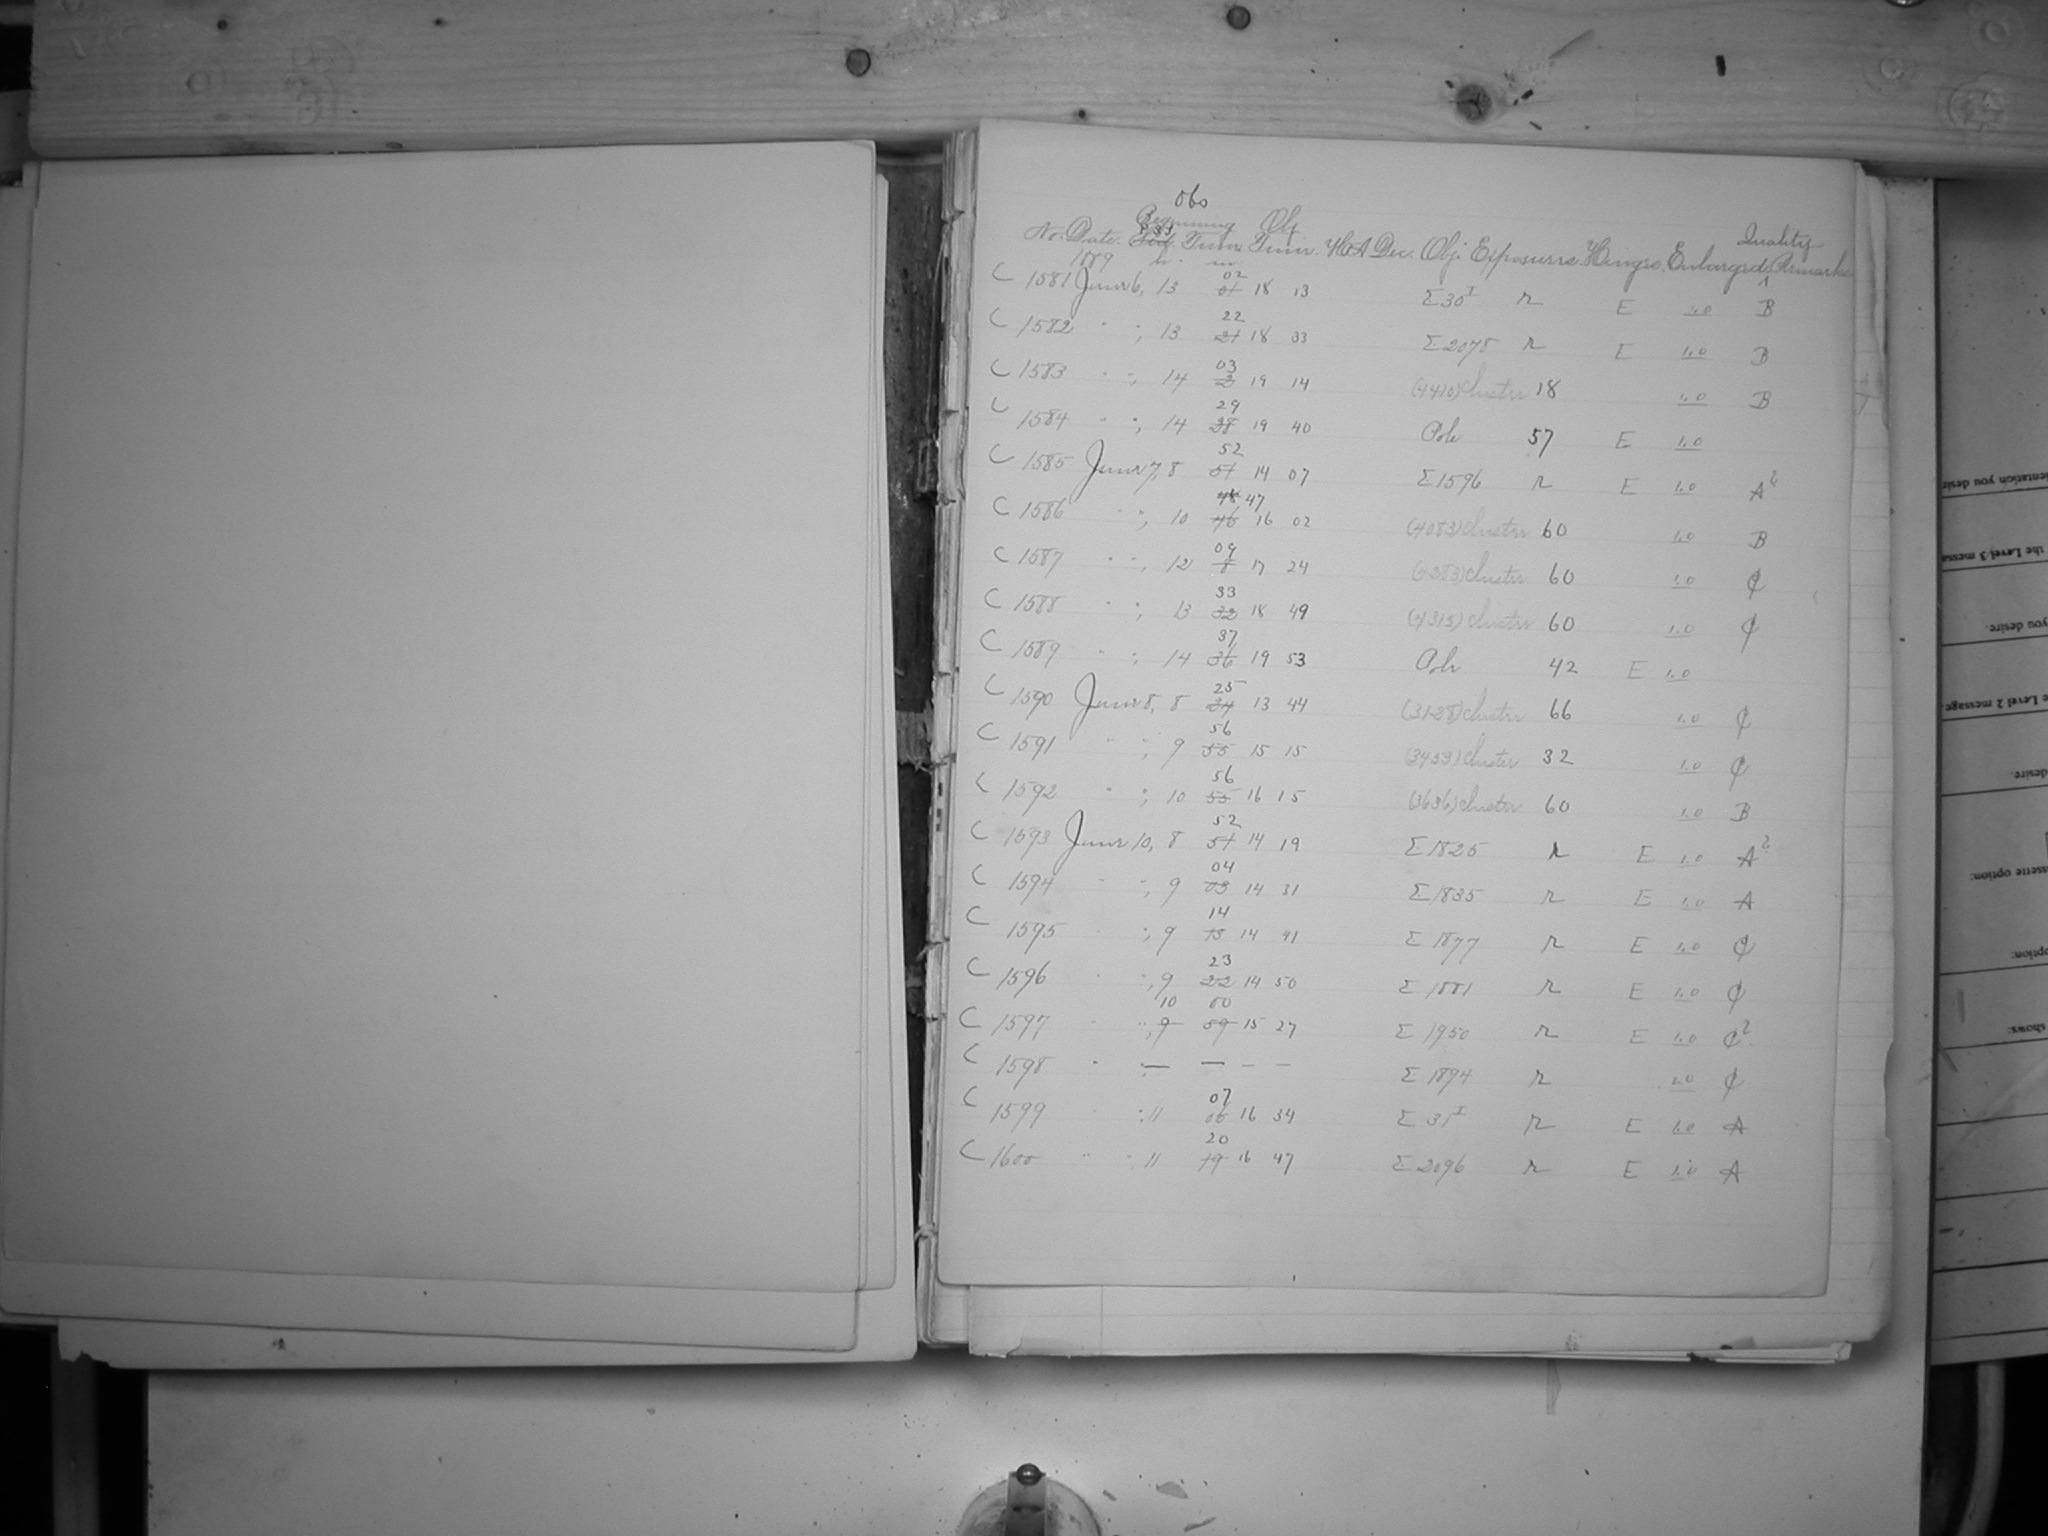 Obs
Beginning Obj. Quality
No. Date. Time. Time. HA Dec. Obj. Exposures. Enlarged. Remarks
1889 h. m.
02
C 1581 June 6, 13 01 18 13 Σ30 I r E 1.0 B
22
C 1582 " ", 13 21 18 33 Σ2078 r E 1.0 B
03
C 1583 " ", 14 2 19 14 (4410) Cluster 18 1.0 B
29
C 1584 " ", 14 28 19 40 Pole 57 E 1.0
52
C 1585 June 7, 8 51 14 07 Σ1596 r E 1.0 A?
48 47
C 1586 " ", 10 46 16 02 (4083) Cluster 60 1.0 B
09
C 1587 " ", 12 8 17 24 Cluster 60 1.0 C
33
C 1588 " ", 13 32 18 49 (4315) Cluster 60 1.0 C
37
C 1589 " ", 14 36 19 53 Pole 42 E 1.0
25
C 1590 June 8, 8 24 13 44 Cluster 66 1.0 C
56
C 1591 " ", 9 55 15 15 (3453) Cluster 32 1.0 C
56
C 1592 " ", 10 55 16 15 (3636) Cluster 60 1.0 B
52
C 1593 June 10, 8 51 14 19 Σ1825 r E 1.0 A?
04
C 1594 " ", 9 03 14 31 Σ1835 r E 1.0 A
14
C 1595 " ", 9 13 14 41 Σ1877 r E 1.0 C
23
C 1596 " ", 9 22 14 50 Σ1881 r E 1.0 C
10 00
C 1597 " ", 9 59 15 27 Σ1950 r E 1.0 C?
C 1598 " ", — — — — Σ1894 r 1.0 C
07
C 1599 " ", 11 06 16 34 Σ31 I r E 1.0 A
20
C 1600 " ", 11 19 16 47 Σ2096 r E 1.0 A
you desir
the Level 3 messa
you desire.
e Level 2 message,
desire.
ssette option:
option:
shows: